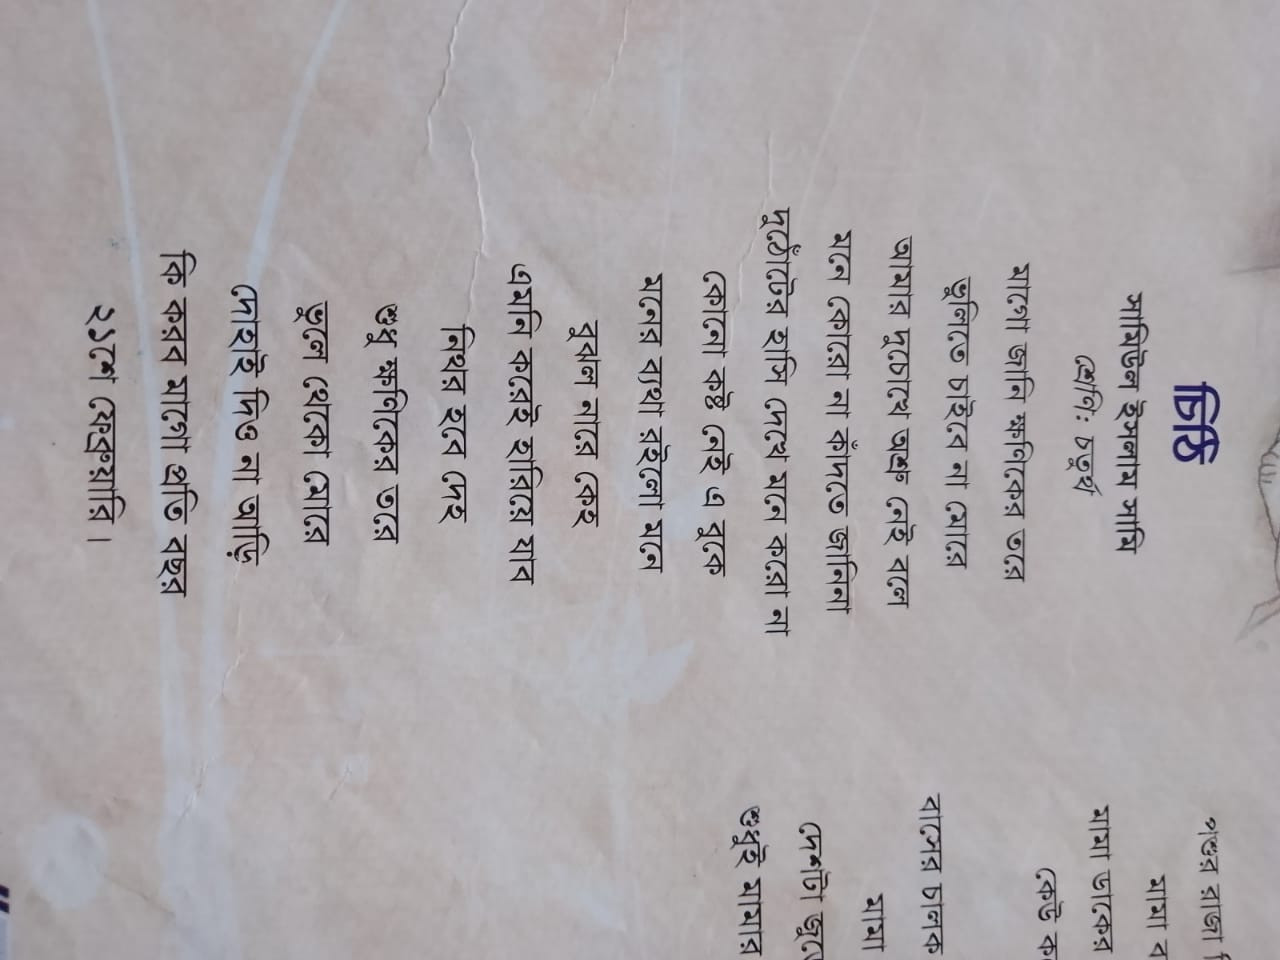 চিঠি
সামিউল ইসলাম সামি
শ্রেণি: চতুর্থ
মাগো জানি ক্ষণিকের তরে
ভুলিতে চাইবে না মোরে
আমার দুচোখে অশ্রু নেই বলে
মনে কোরো না কাঁদতে জানিনা
দুঠোঁটের হাসি দেখে মনে করো না
কোনো কষ্ট নেই এ বুকে
মনের ব্যথা রইলো মনে
বুঝল নারে কেহ
এমনি করেই হারিয়ে যাব
নিথর হবে দেহ
শুধু ক্ষণিকের তরে
ভুলে থেকো মোরে
দোহাই দিও না আড়ি
কি করব মাগো প্রতি বছর
২১শে ফেব্রুয়ারি।
পশুর রাজা
মামা ব
মামা ডাকের
কেউ ক
বাসের চালক
মামা
দেশটা জুড়ে
শুধুই মামার